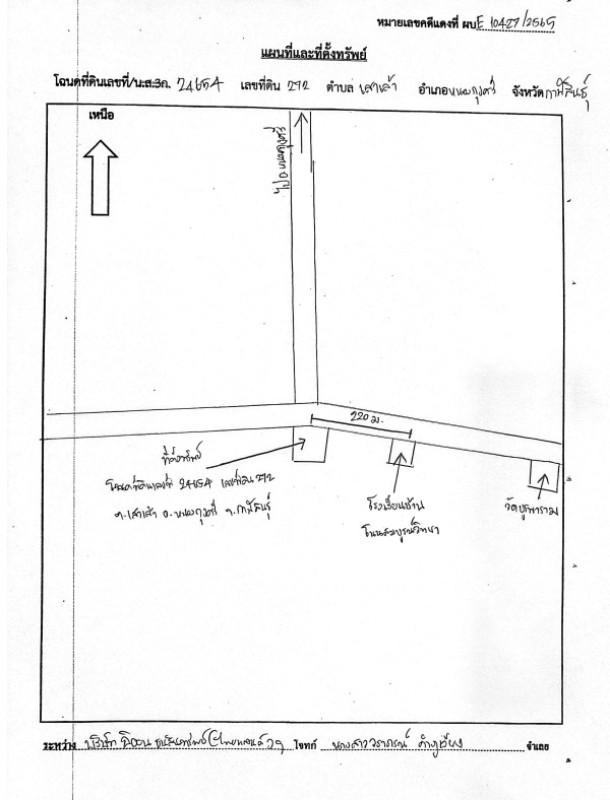 หมายเลขคดีแดงที่ ผบE 10427/2565
แผนที่และที่ตั้งทรัพย์
โฉนดที่ดินเลขที่/น.ส.3ก. 24654 เลขที่ดิน 292 ตำบล เสาเล้า อำเภอหนองกุงศรี จังหวัดกาฬสินธุ์
เหนือ
ไป อ.หนองกุงศรี
220 ม.
ที่ตั้งทรัพย์
โฉนดที่ดินเลขที่ 24654 เลขที่ดิน 292
ต.เสาเล้า อ.หนองกุงศรี จ.กาฬสินธุ์
โรงเรียนบ้าน
โนนสมบูรณ์วิทยา
วัดบูรพาราม
ระหว่าง บริษัท อิออน ธนสินทรัพย์ (ไทยแลนด์) โจทก์ นางสาววราภรณ์ จำเลย